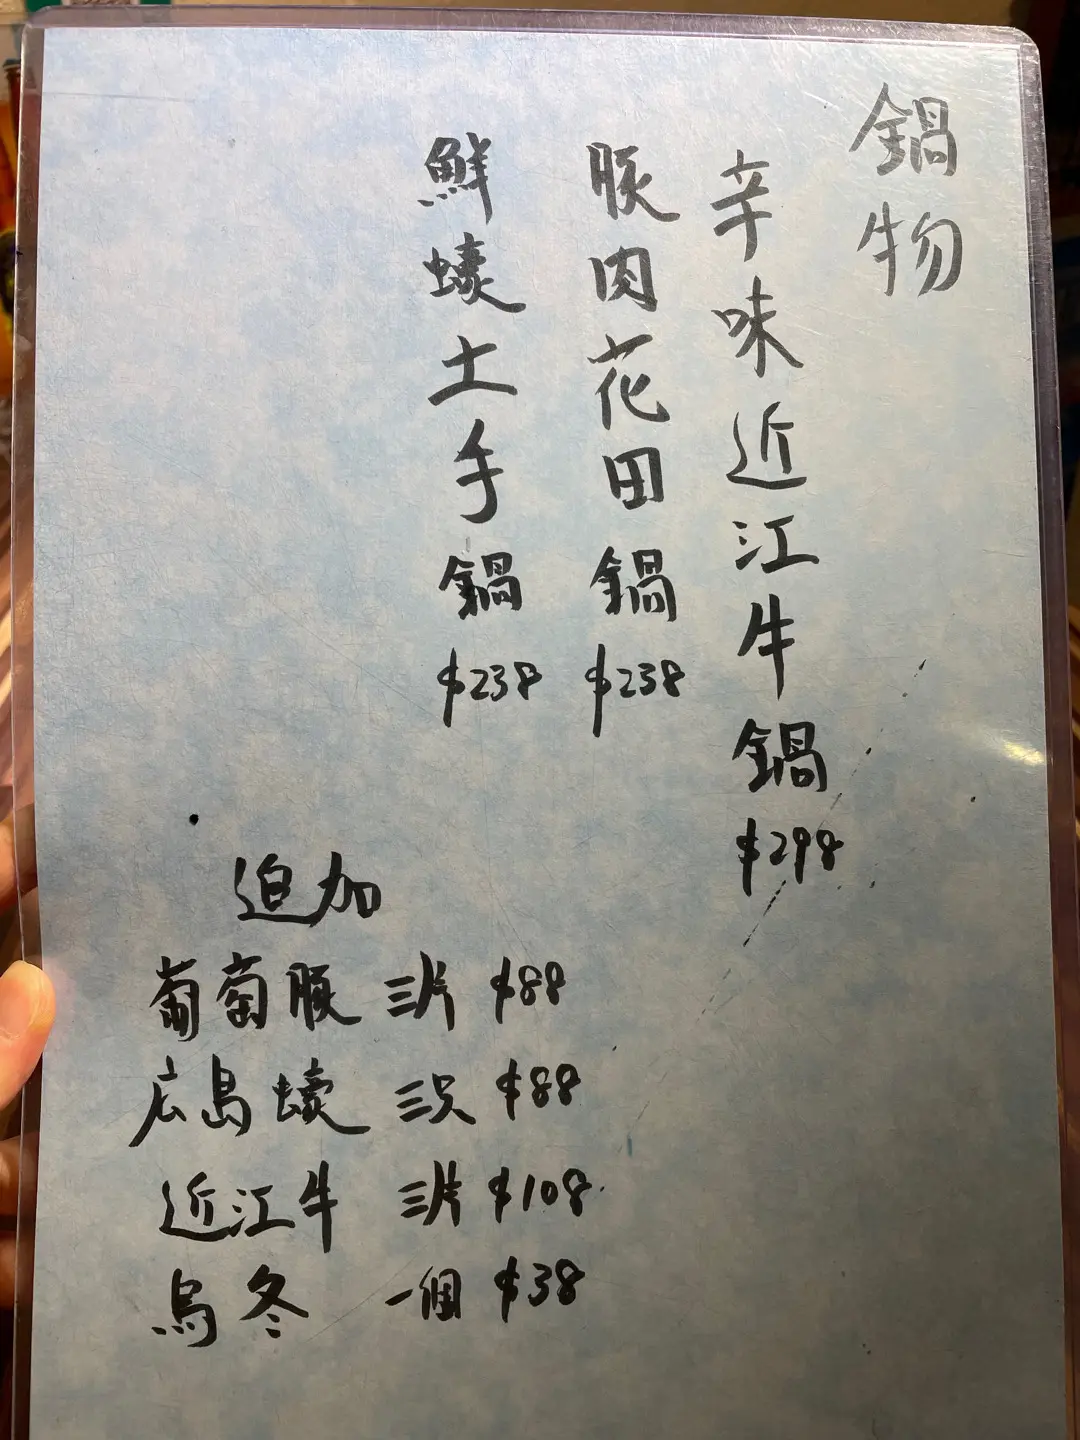 鍋物
辛味近江牛鍋 $298
豚肉花田鍋 $238
鮮蠔土手鍋 $238
追加
葡萄豚 三片 $88
広島蠔 三只 $88
近江牛 三片 $108
烏冬 一個 $38